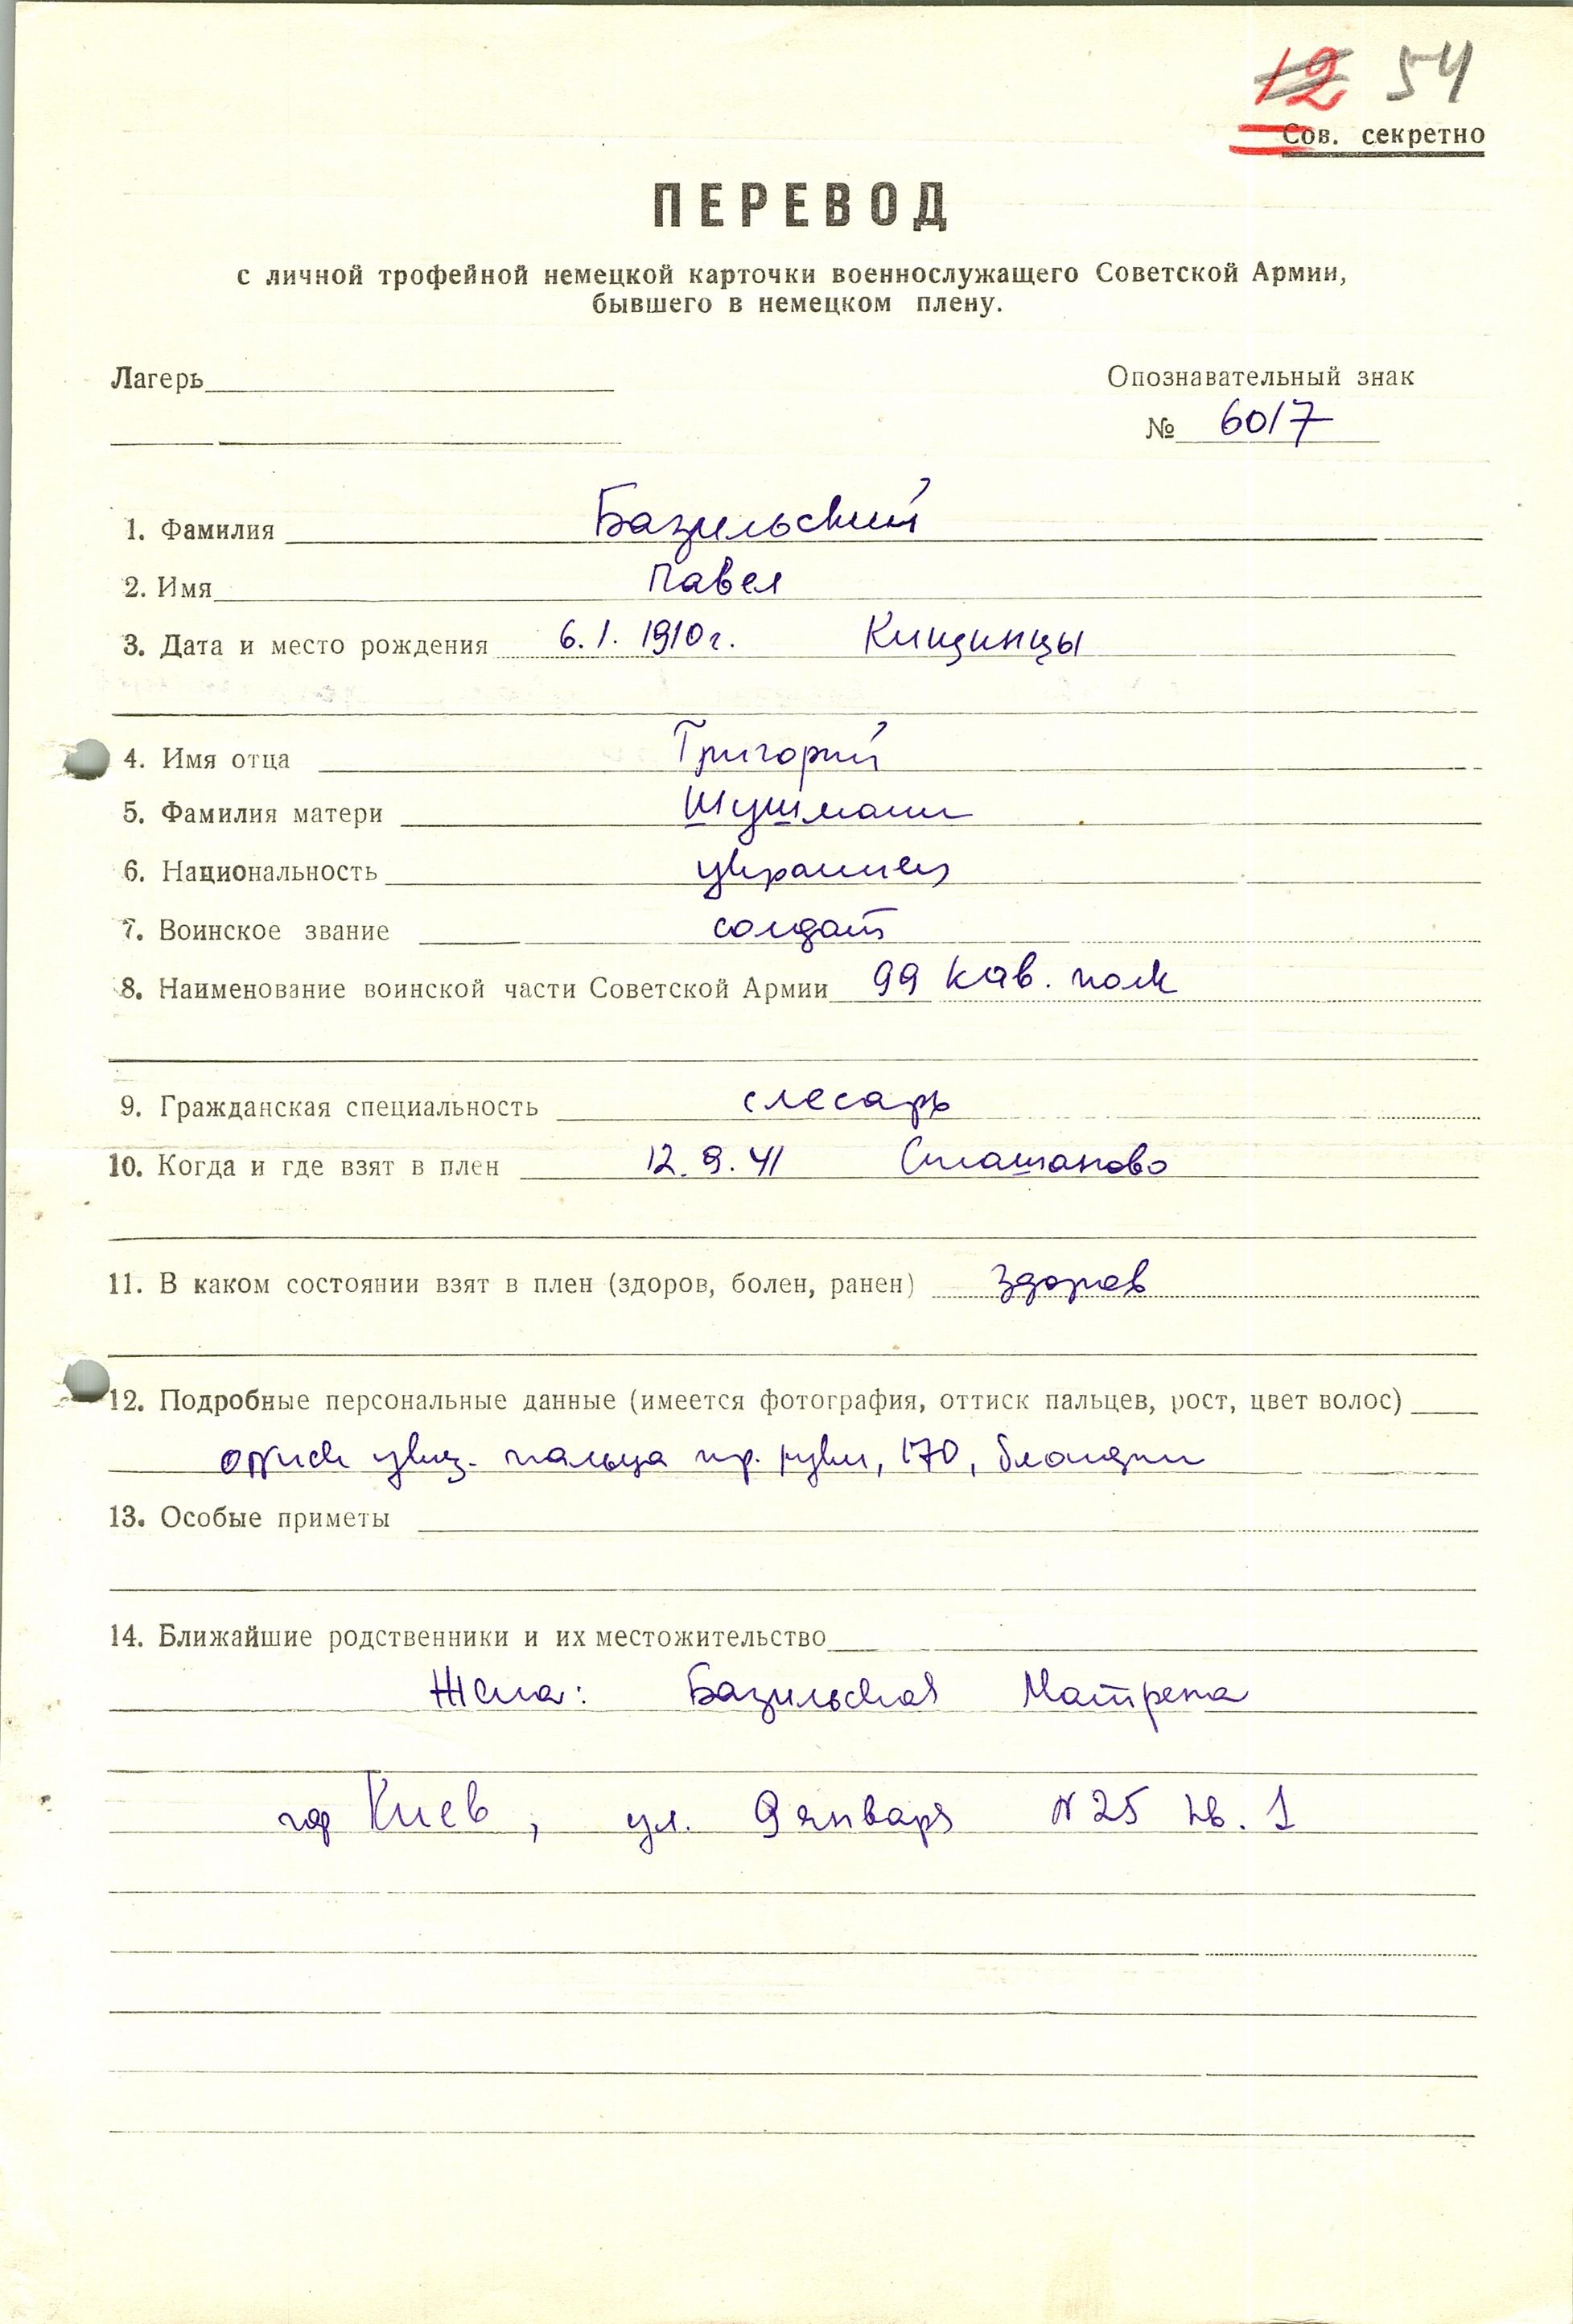 12 54
Сов. секретно
ПЕРЕВОД
с личной трофейной немецкой карточки военнослужащего Советской Армии,
бывшего в немецком плену.
Лагерь
Опознавательный знак
№ 6017
1. Фамилия Базильский
2. Имя Павел
3. Дата и место рождения 6.1. 1910г. Кищинцы
4. Имя отца Григорий
5. Фамилия матери
6. Национальность украинец
7. Воинское звание солдат
8. Наименование воинской части Советской Армии 99 кав. полк
9. Гражданская специальность слесарь
10. Когда и где взят в плен 12.9.41
11. В каком состоянии взят в плен (здоров, болен, ранен) здоров
12. Подробные персональные данные (имеется фотография, оттиск пальцев, рост, цвет волос)
оттиск указ. пальца пр. руки, 170, блондин
13. Особые приметы
14. Ближайшие родственники и их местожительство
Жена: Базильская Матрена
гор Киев, ул. 9 января N 25 кв. 1